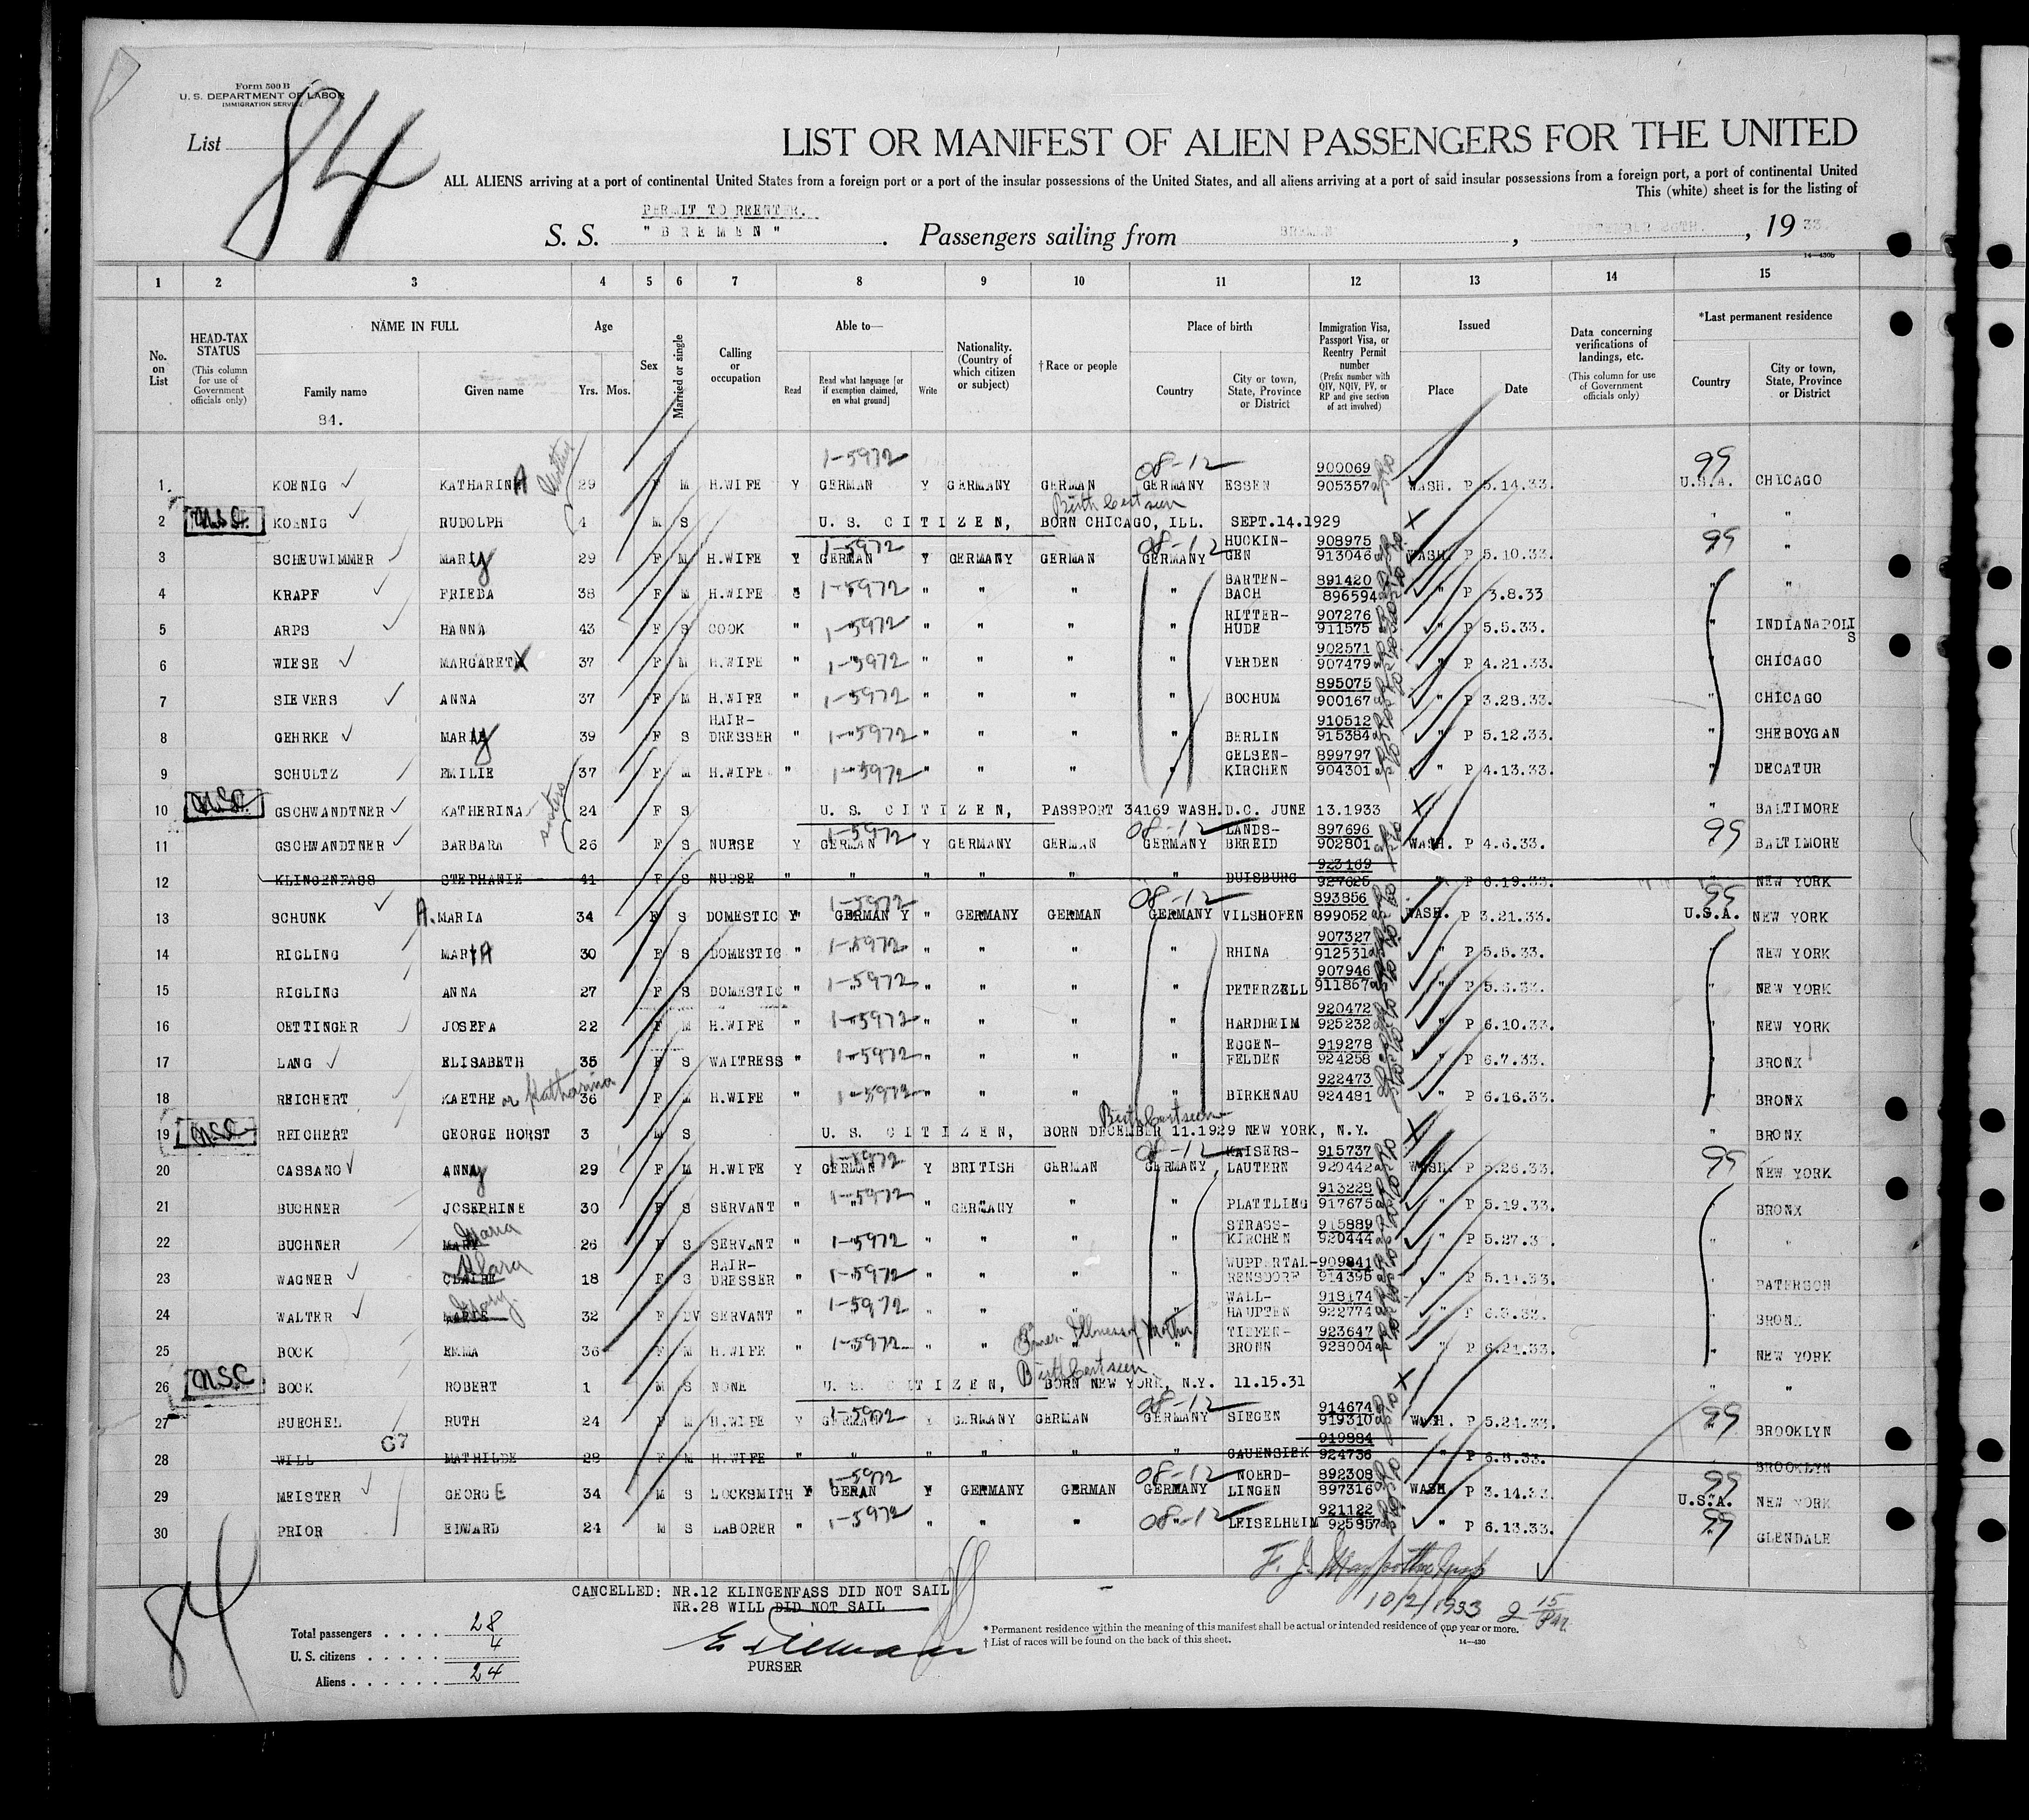 Form 500 B
U. S. DEPARTMENT OF LABOR
IMMIGRATION SERVICE
List 84
LIST OR MANIFEST OF ALIEN PASSENGERS FOR THE UNITED
ALL ALIENS arriving at a port of continental United States from a foreign port or a port of the insular possessions of the United States, and all aliens arriving at a port of said insular possessions from a foreign port, a port of continental United
This (white) sheet is for the listing of
PERMIT TO REENTER.
S. S. "BREMEN". Passengers sailing from BREMEN, SEPTEMBER 26TH., 1933.
14—430b
1 2 3 4 5 6 7 8 9 10 11 12 13 14 15
No. on List
HEAD-TAX STATUS (This column for use of Government officials only)
NAME IN FULL Family name Given name
84.
Age Yrs. Mos.
Sex
Married or single
Calling or occupation
Able to— Read Read what language [or if exemption claimed, on what ground] Write
Nationality. (Country of which citizen or subject)
†Race or people
Place of birth Country City or town, State, Province or District
Immigration Visa, Passport Visa, or Reentry Permit number (Prefix number with QIV, NQIV, PV, or RP and give section of act involved)
Issued Place Date
Data concerning verifications of landings, etc. (This column for use of Government officials only)
*Last permanent residence Country City or town, State, Province or District
1 KOENIG KATHARINA 29 F M H.WIFE Y GERMAN 1-5972 Y GERMANY GERMAN 08-12 GERMANY ESSEN 900069 905357 WASH. P 5.14.33. 99 U.S.A. CHICAGO
2 N.S.C. KOENIG RUDOLPH 4 M S U. S. CITIZEN, BORN CHICAGO, ILL. SEPT.14.1929 Birth Cert seen X " "
3 SCHEUWIMMER MARY 29 F M H.WIFE Y GERMAN 1-5972 Y GERMANY GERMAN 08-12 GERMANY HUCKIN-GEN 908975 913046 WASH. P 5.10.33. 99 "
4 KRAPF FRIEDA 38 F M H.WIFE 1-5972 " " " " BARTEN-BACH 891420 896594 " P 3.8.33 " "
5 ARPS HANNA 43 F S COOK " 1-5972 " " " " RITTER-HUDE 907276 911575 " P 5.5.33. " INDIANAPOLIS
6 WIESE MARGARET 37 F M H.WIFE " 1-5972 " " " " VERDEN 902571 907479 " P 4.21.33. " CHICAGO
7 SIEVERS ANNA 37 F M H.WIFE " 1-5972 " " " " BOCHUM 895075 900167 " P 3.28.33. " CHICAGO
8 GEHRKE MARY 39 F S HAIR-DRESSER " 1-5972 " " " " BERLIN 910512 915384 " P 5.12.33. " SHEBOYGAN
9 SCHULTZ EMILIE 37 F M H.WIFE " 1-5972 " " " " GELSEN-KIRCHEN 899797 904301 " P 4.13.33. " DECATUR
10 N.S.C. GSCHWANDTNER KATHERINA sisters 24 F S U. S. CITIZEN, PASSPORT 34169 WASH.D.C. JUNE 13.1933 X " BALTIMORE
11 GSCHWANDTNER BARBARA 26 F S NURSE Y GERMAN 1-5972 Y GERMANY GERMAN 08-12 GERMANY LANDS-BEREID 897696 902801 WASH. P 4.6.33. 99 BALTIMORE
12 KLINGENFASS STEPHANIE 41 F S NURSE " " " " " " DUISBURG 923169 927625 " P 6.19.33. " NEW YORK
13 SCHUNK A. MARIA 34 F S DOMESTIC Y GERMAN 1-5972 Y " GERMANY GERMAN 08-12 GERMANY VILSHOFEN 893856 899052 WASH. P 3.21.33. 99 U.S.A. NEW YORK
14 RIGLING MARIA 30 F S DOMESTIC " 1-5972 " " " " RHINA 907327 912531 " P 5.5.33. " NEW YORK
15 RIGLING ANNA 27 F S DOMESTIC " 1-5972 " " " " PETERZELL 907946 911867 " P 5.6.33. " NEW YORK
16 OETTINGER JOSEFA 22 F M H.WIFE " 1-5972 " " " " HARDHEIM 920472 925232 " P 6.10.33. " NEW YORK
17 LANG ELISABETH 35 F S WAITRESS " 1-5972 " " " " EGGEN-FELDEN 919278 924258 " P 6.7.33. " BRONX
18 REICHERT KAETHE or Katharina 36 F M H.WIFE " 1-5972 " " " " BIRKENAU 922473 924481 " P 6.16.33. " BRONX
19 N.S.C. REICHERT GEORGE HORST 3 M S U. S. CITIZEN, BORN DECEMBER 11.1929 NEW YORK, N.Y. Birth Cert seen X " BRONX
20 CASSANO ANNY 29 F M H.WIFE Y GERMAN 1-5972 Y BRITISH GERMAN 08-12 GERMANY KAISERS-LAUTERN 915737 920442 WASH. P 5.26.33. 99 NEW YORK
21 BUCHNER JOSEPHINE 30 F S SERVANT " 1-5972 " GERMANY " " PLATTLING 913228 917675 " P 5.19.33. " BRONX
22 BUCHNER Maria 26 F S SERVANT " 1-5972 " " " " STRASS-KIRCHEN 915889 920444 " P 5.27.3 " "
23 WAGNER CLAIRE Klara 18 F S HAIR-DRESSER " 1-5972 " " " " WUPPERTAL-RENSDORF 909841 914395 " P 5.11.33. " PATERSON
24 WALTER MARIE Mary. 32 F DV SERVANT " 1-5972 " " " " WALL-HAUPTEN 918174 922774 " P " BRONX
25 BOCK EMMA 36 F M H.WIFE " 1-5972 " " Illness of Mother TIEFEN-BRONN 923647 928004 " P 6.21.33. " NEW YORK
26 N.S.C. BOCK ROBERT 1 M S NONE U. S. CITIZEN, BORN NEW YORK, N.Y. 11.15.31 Birth Cert seen X " "
27 BUECHEL RUTH 24 F M H.WIFE Y GERMAN 1-5972 Y GERMANY GERMAN 08-12 GERMANY SIEGEN 914674 919310 WASH. P 5.24.33. 99 BROOKLYN
28 WILL C7 MATHILDE 28 F M H.WIFE " " " " " " GAUENSIEK 919884 924736 " P 6.8.33. BROOKLYN
29 MEISTER GEORGE 34 M S LOCKSMITH Y GERAN 1-5972 Y GERMANY GERMAN 08-12 GERMANY NOERD-LINGEN 892308 897316 WASH. P 3.14.33. 99 U.S.A. NEW YORK
30 PRIOR EDWARD 24 M S LABORER " 1-5972 " " " 08-12 LEISELHEIM 921122 925857 " P 6.13.33. 99 GLENDALE
84
CANCELLED: NR.12 KLINGENFASS DID NOT SAIL
NR.28 WILL DID NOT SAIL
10/2/1933
Total passengers . . . . 28
U. S. citizens . . . . . 4
Aliens . . . . . . 24
PURSER
* Permanent residence within the meaning of this manifest shall be actual or intended residence of one year or more.
† List of races will be found on the back of this sheet.
14—430